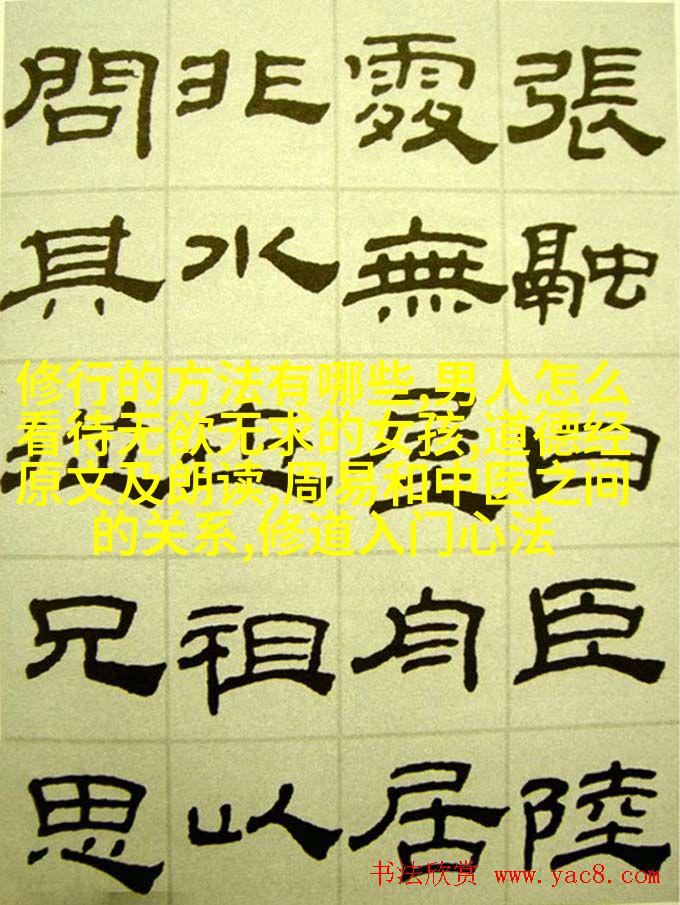 張融曰臣陸
處無屋舟居
非水祖以
問其兄思
修行的方法有哪些,男人怎么
看待无欲无求的女孩,道德经
原文及朗读,周易和中医之间
的关系,修道入门心法
书法欣赏 www.yac8.com